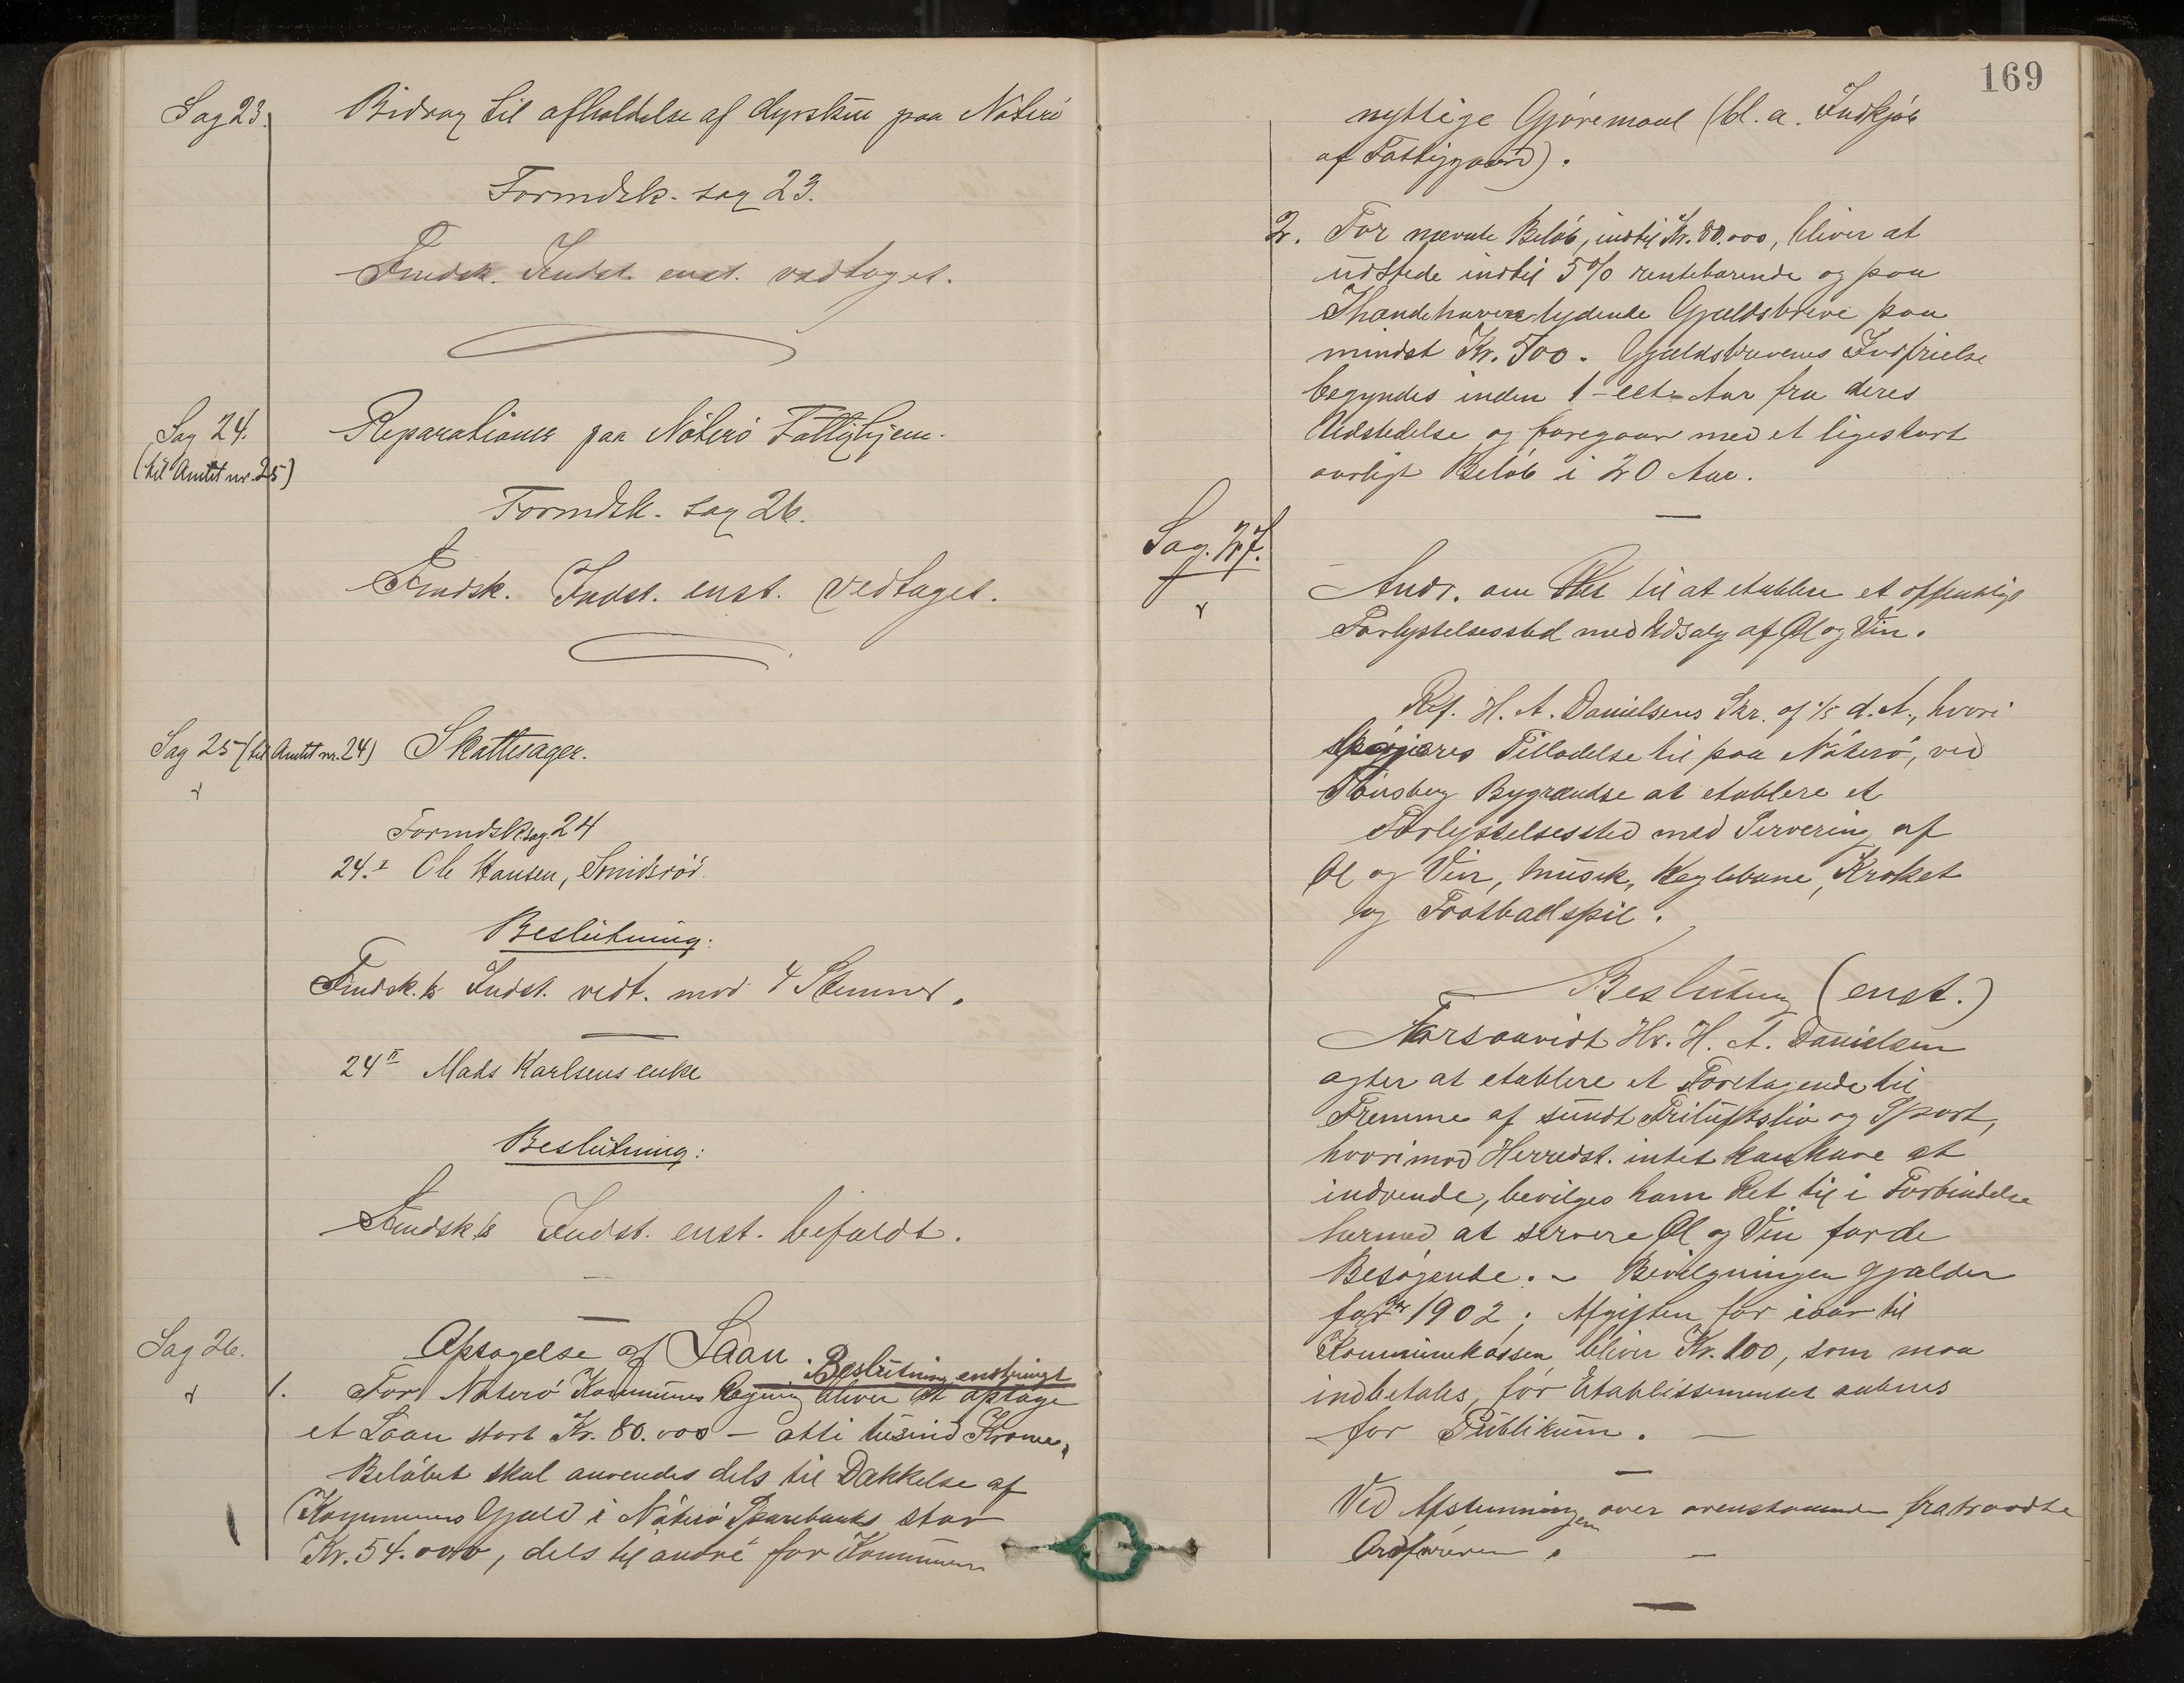 Sag 23. Bidrag til afholdelse af dyrskue paa Nøterø
Formdsk. sag 23.
Fmdsk. Indst. enst. vedtaget.
Sag 24. Reparationer paa Nøterø Fattighjem.
(til Amtet nr. 25)
Formdsk. sag 26.
Fmdsk. Indst. enst. vedtaget.
Sag 25 (til Amtet nr. 24) Skattesager.
Formdsk. sag. 24
24.I Ole Hansen, Smidsrød.
Beslutning:
Fmdsk.s Indst. vedt. mod 4 Stemmer.
24 II Mads Karlsens enke
Beslutning:
Fmdsk.s Indst. enst. bifaldt.
Sag 26. Optagelse af Laan. Beslutning enstemmigt
1. For Nøterø Kommunes Regning bliver at optage
et Laan stort Kr. 80.000 – otti tusind Kroner,
Beløbet skal anvendes dels til Dækkelse af
Kommunens Gjæld i Nøterø Sparebank stor
Kr. 54.000, dels til andre for Kommunen
169
nyttige Gjøremaal (bl. a. Indkjøb
af Fattiggaard).
2. For nævnte Beløb, indtil Kr. 80.000, bliver at
udstede indtil 5% rentebærende og paa
Ihændehaveren lydende Gjældsbreve paa
mindst Kr. 500. Gjældsbrevenes Indfrielse
begyndes inden 1 – et – Aar fra deres
Udstedelse og foregaar med et ligestort
aarligt Beløb i 20 Aar.
Sag. 27.
Andr. om Ret til at etablere et offentligt
Forlystelsessted med Udsalg af Øl og Vin.
Ref. H. A. Danielsens Skr. af 1/5 d. A., hvori
Tilladelse til paa Nøterø, ved
Tønsberg Bygrændse at etablere et
Forlystelsessted med Servering af
Øl og Vin, Musik, Keglebane, Kroket
og Footballspil.
Beslutning (enst.)
Forsaavidt Hr. H. A. Danielsen
agter at etablere et Foretagende til
Fremme af sundt Friluftsliv og Sport,
hvorimod Herredst. intet kan have at
indvende, bevilges ham Ret til i Forbindelse
hermed at servere Øl og Vin for de
Besøgende. – Bevilgningen gjælder
for 1902; Afgiften for iaar til
Kommunekassen bliver Kr. 100, som maa
indbetales, før Etablissementet aabnes
for Publikum. –
Ved Afstemningen over ovenstaaende fratraadte
Ordføreren. –